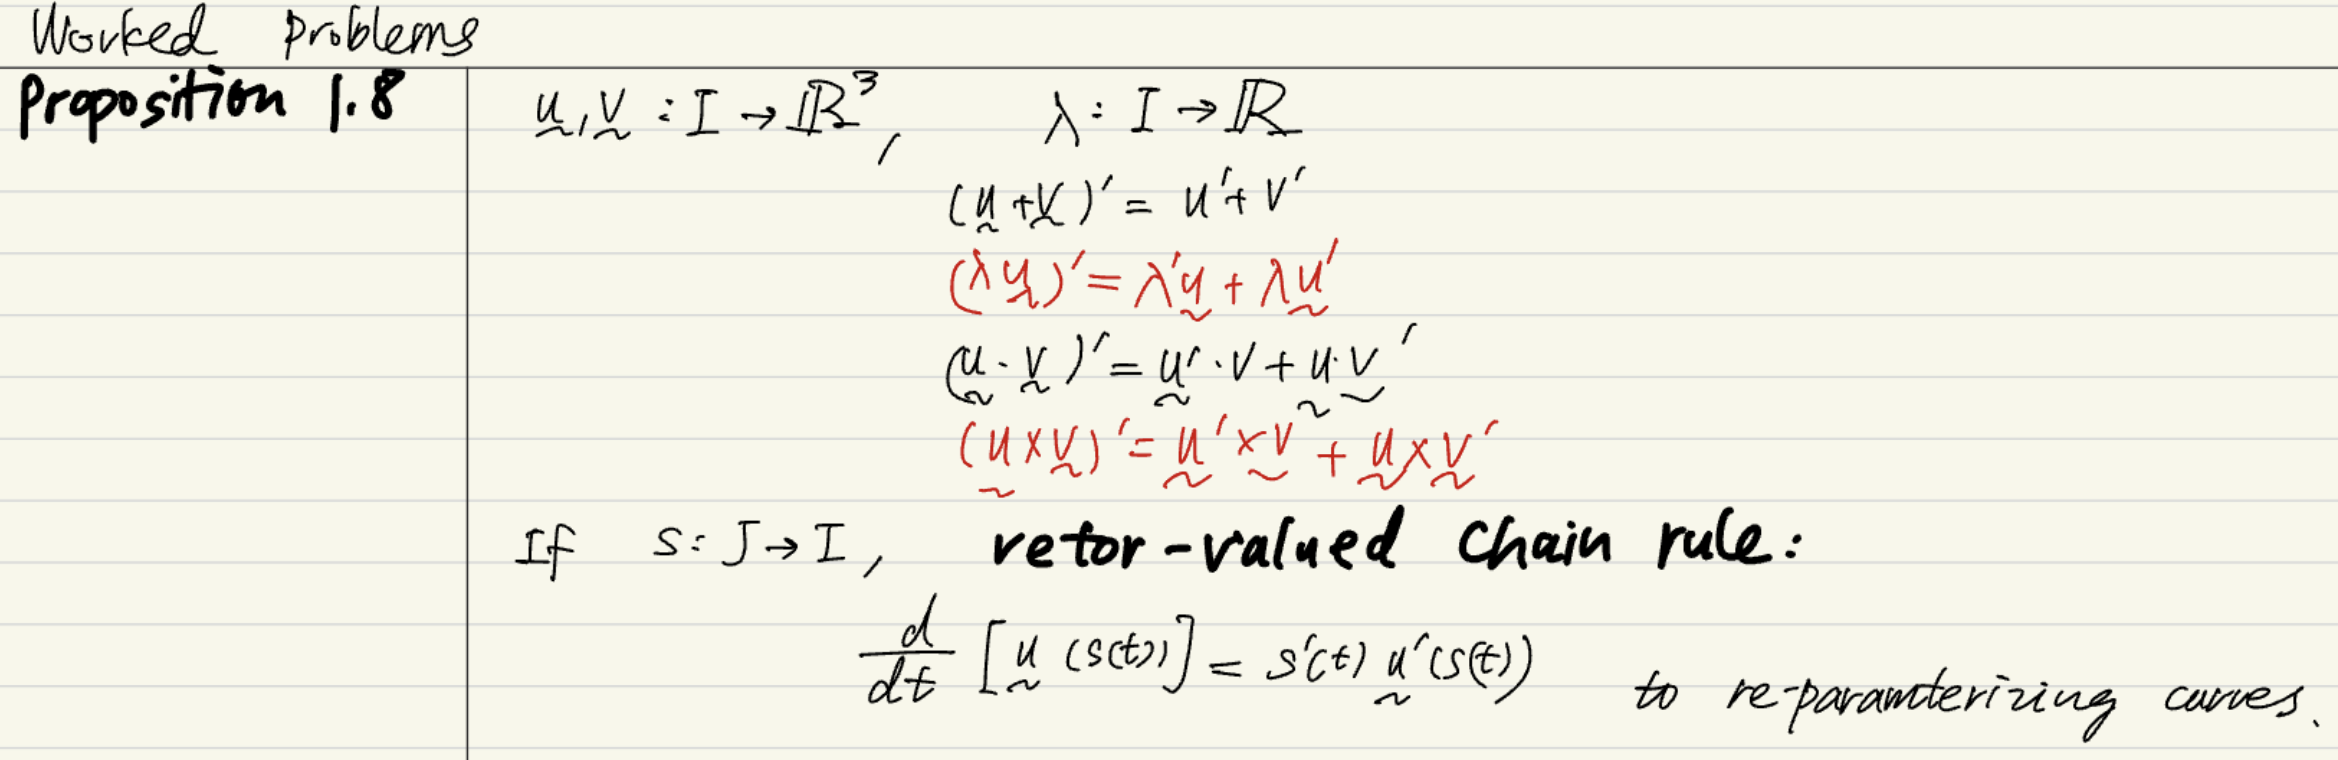 Worked Problems
Proposition 1.8
u, v : I → ℝ³, λ : I → ℝ
(u + v)′ = u′ + v′
(λu)′ = λ′u + λu′
(u · v)′ = u′ · v + u · v′
(u × v)′ = u′ × v + u × v′
If s : J → I, vetor-valued Chain rule:
d/dt [u (s(t))] = s′(t) u′(s(t)) to re-paramterizing curves.